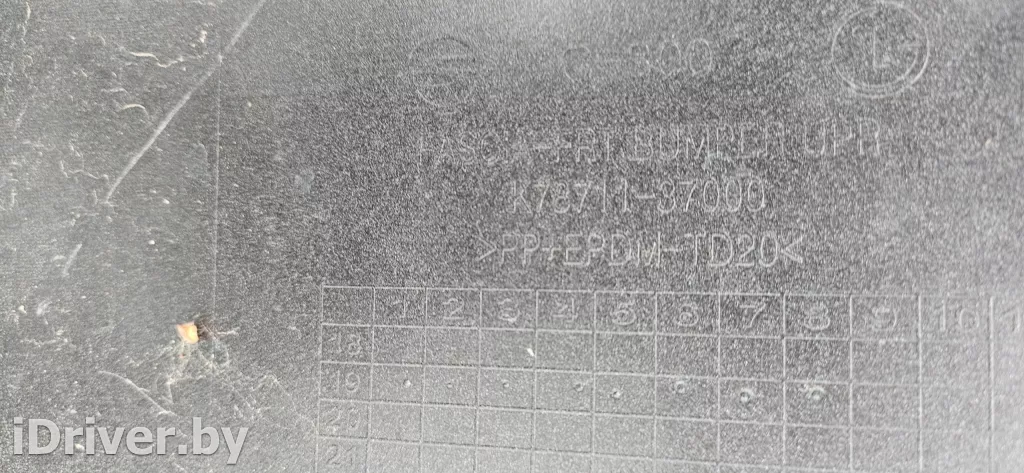 C-300
FASCIA-FRT BUMPER UPR
K78711-37000
>PP+EPDM-TD20<
1 2 3 4 5 6 7 8 9 10
18
19
20
21
iDriver.by